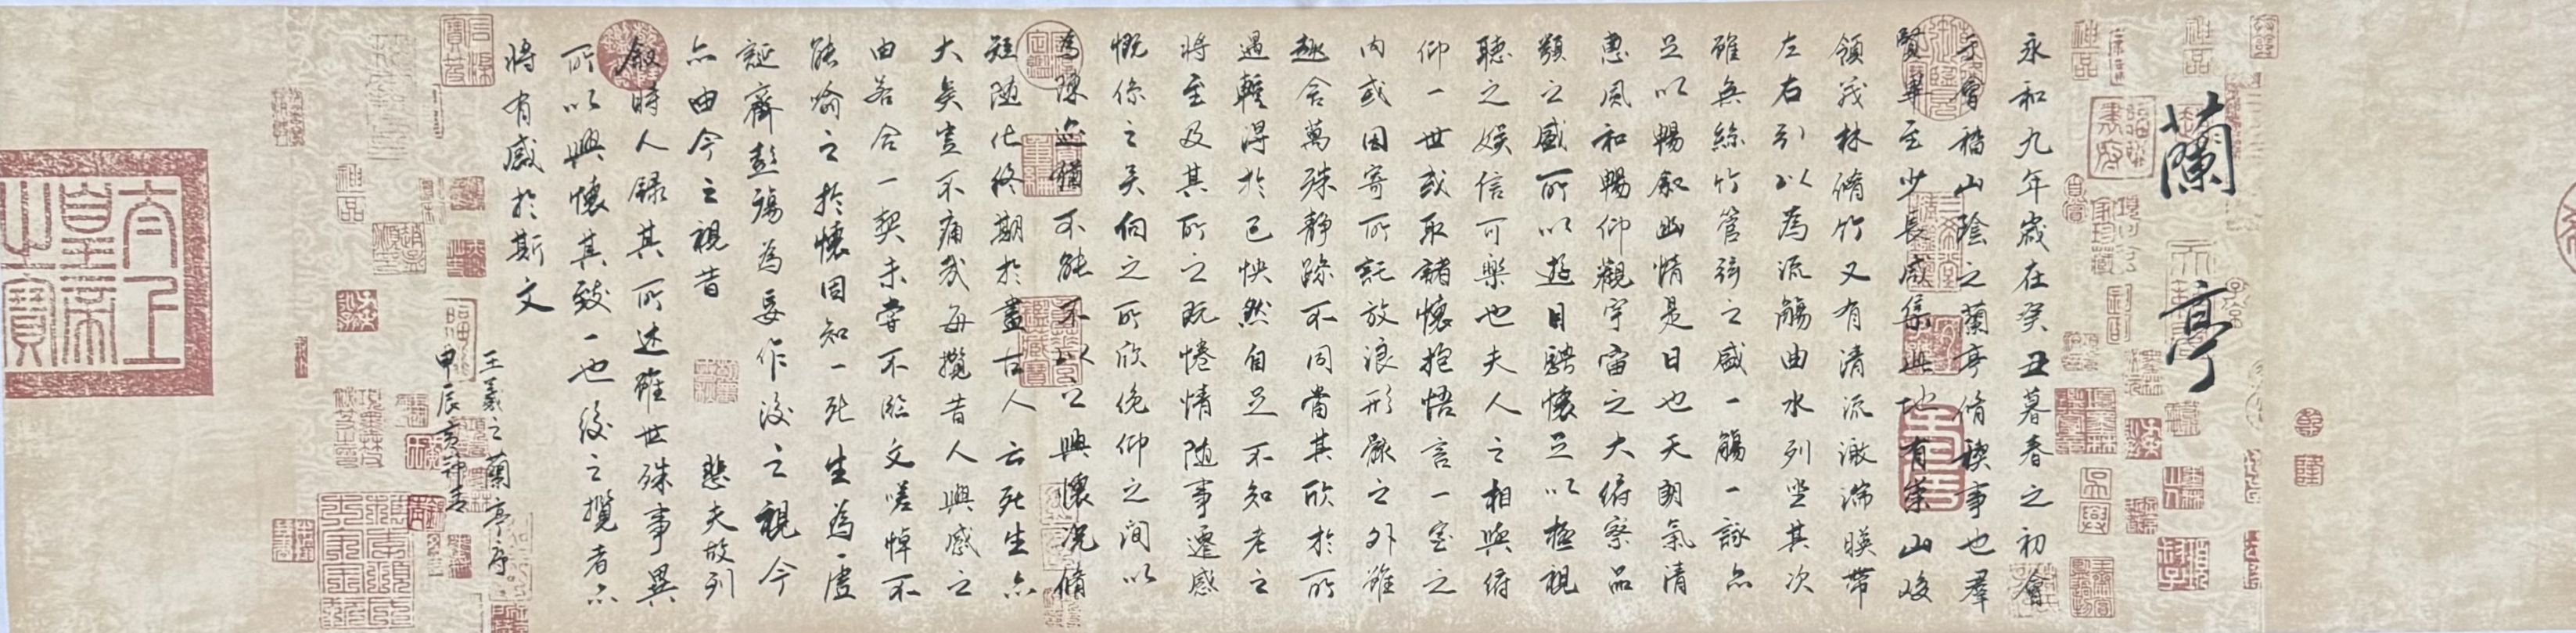 蘭亭
永和九年歲在癸丑暮春之初會
于會稽山陰之蘭亭脩稧事也羣
賢畢至少長咸集此地有崇山峻
領茂林脩竹又有清流激湍暎帶
左右引以為流觴曲水列坐其次
雖無絲竹管弦之盛一觴一詠亦
足以暢敘幽情是日也天朗氣清
惠風和暢仰觀宇宙之大俯察品
類之盛所以遊目騁懷足以極視
聽之娛信可樂也夫人之相與俯
仰一世或取諸懷抱悟言一室之
內或因寄所託放浪形骸之外雖
趣舍萬殊靜躁不同當其欣於所
遇輒得於己怏然自足不知老之
將至及其所之既惓情隨事遷感
慨係之矣向之所欣俛仰之間以
為陳迹猶不能不以之興懷況脩
短隨化終期於盡古人云死生亦
大矣豈不痛哉每攬昔人興感之
由若合一契未嘗不臨文嗟悼不
能喻之於懷固知一死生為虛
誕齊彭殤為妄作後之視今
亦由今之視昔 悲夫故列
敘時人錄其所述雖世殊事異
所以興懷其致一也後之攬者亦
將有感於斯文
王羲之蘭亭序
甲辰
太上皇帝之寶